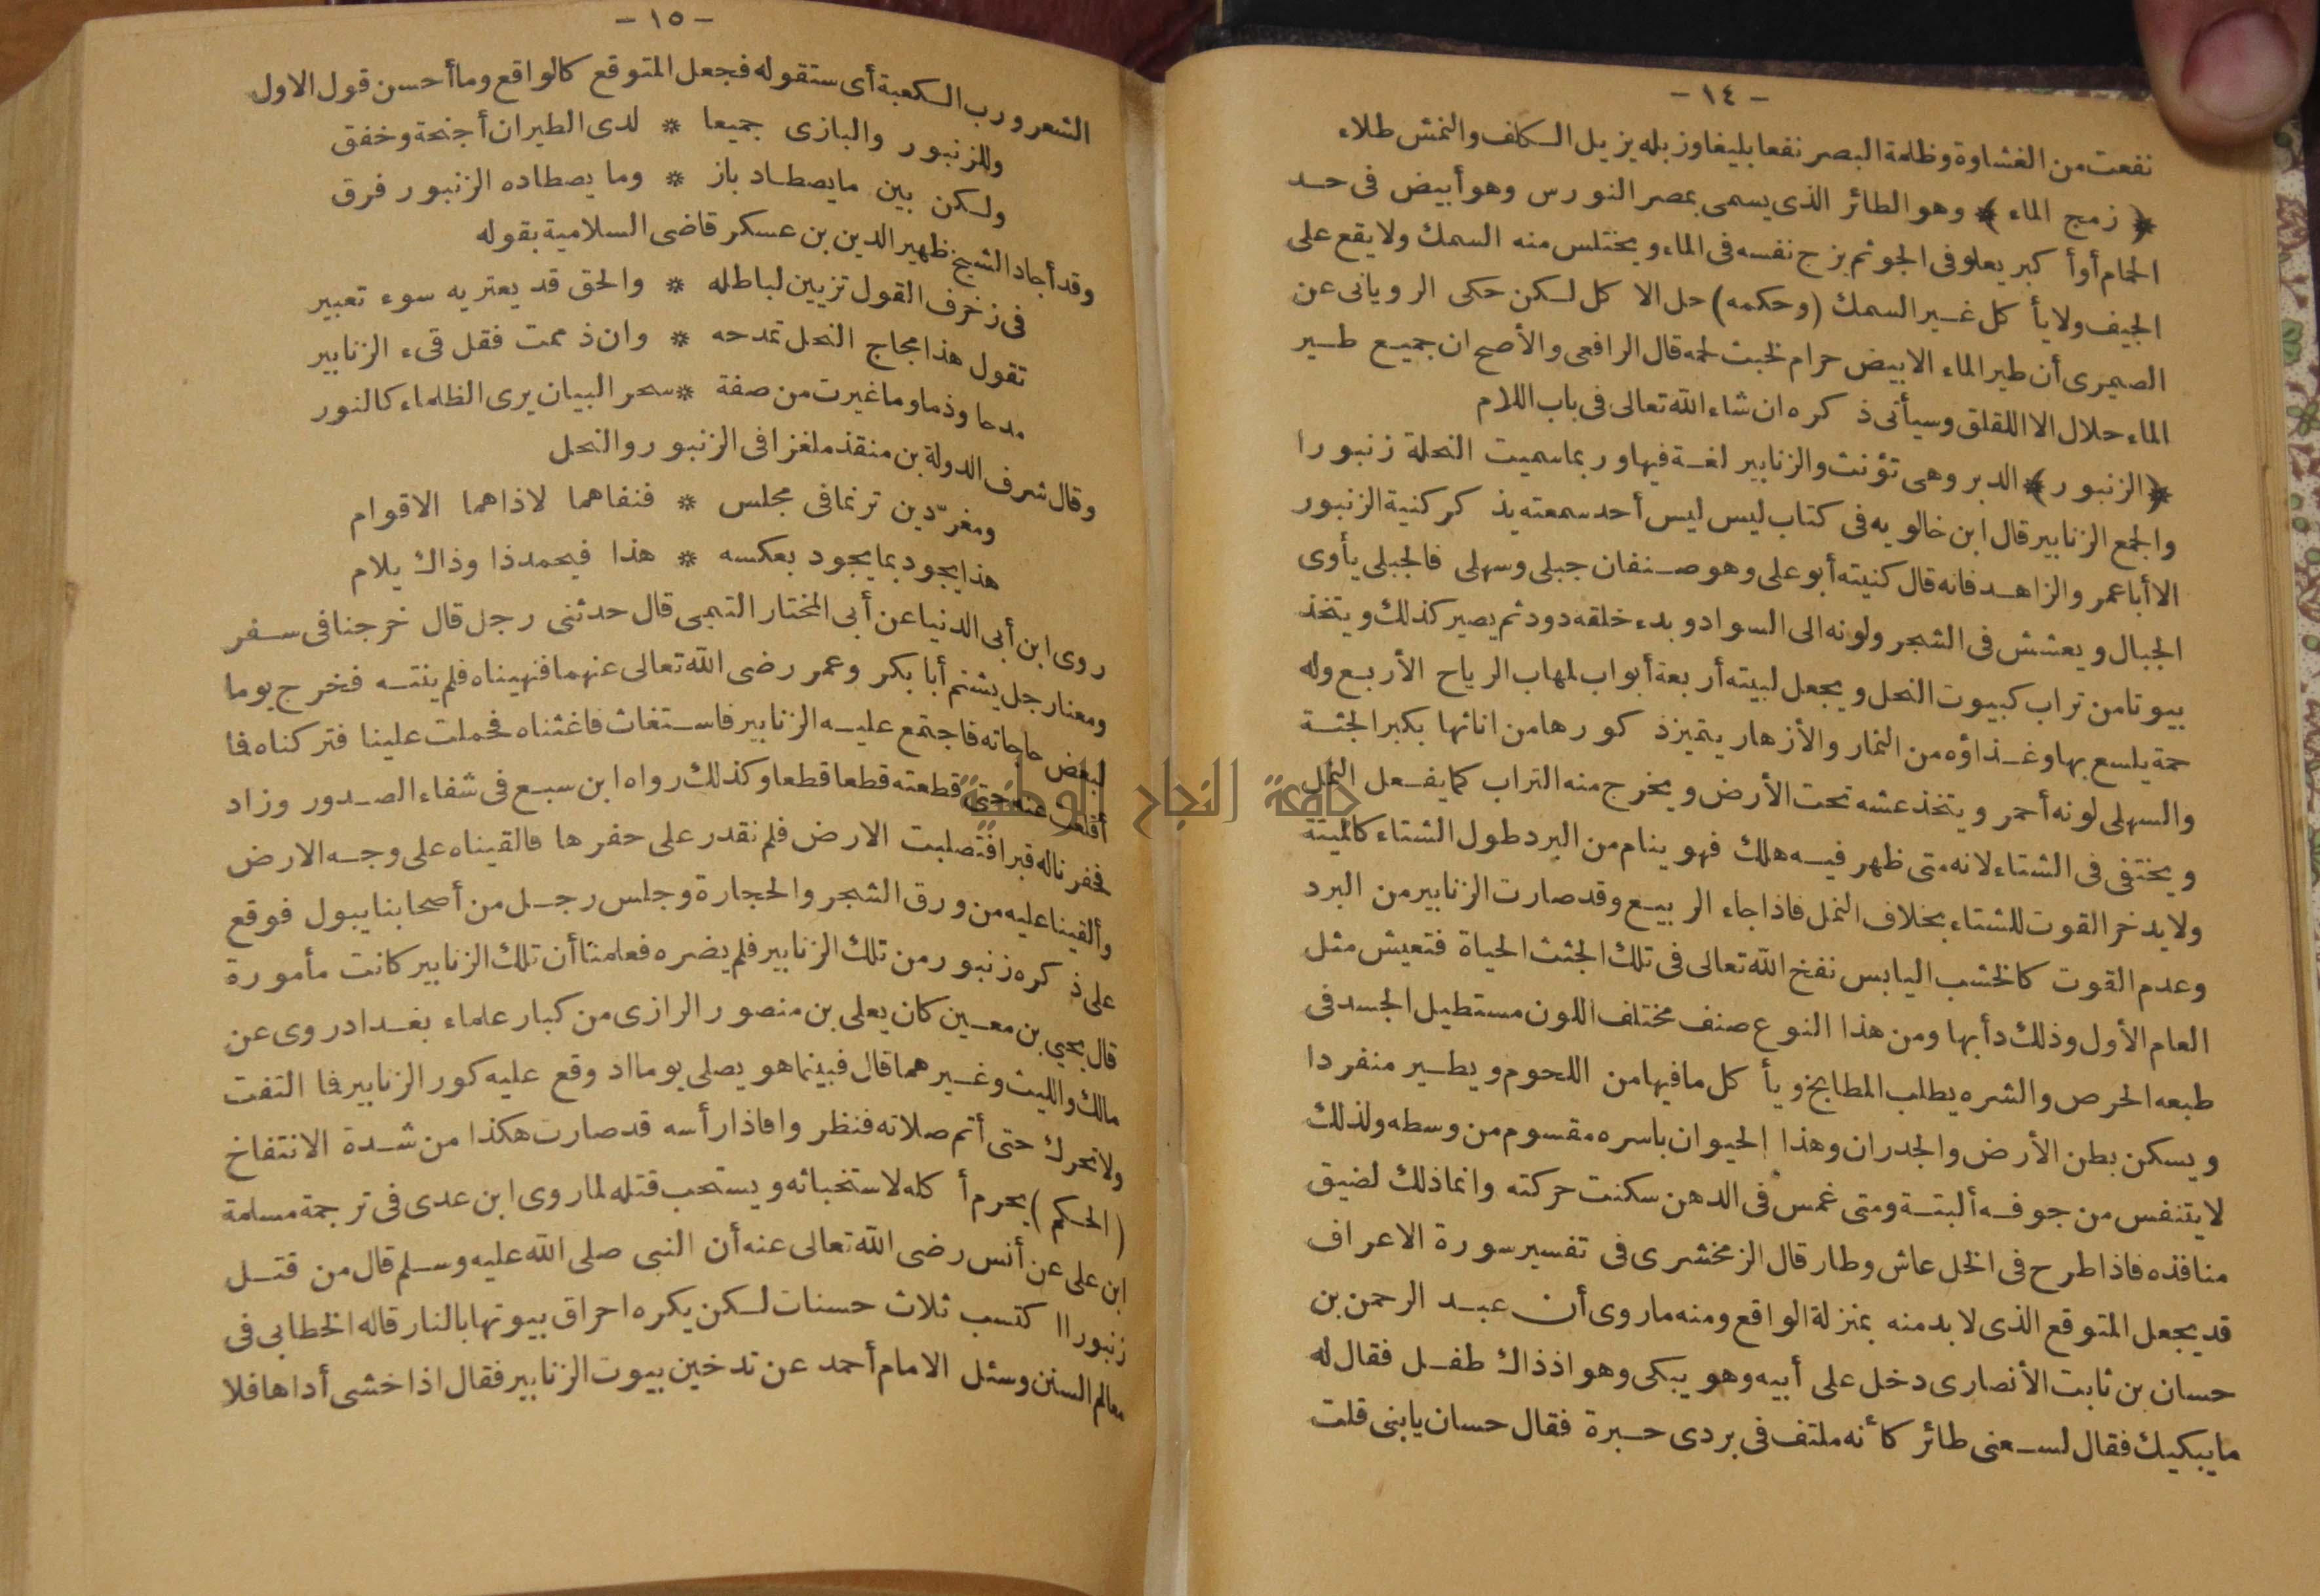 - ١٤ -
نفعت من الغشاوة وظلمة البصر نفعا بليغا وزبله يزيل الكلف والنمش طلاء
﴿ زمج الماء ﴾ وهو الطائر الذى يسمى بمصر النورس وهو أبيض فى حد
الحمام أوأكبر يعلو فى الجو ثم يزج نفسه فى الماء ويختلس منه السمك ولا يقع على
الجيف ولا يأكل غير السمك (وحكمه) حل الاكل لكن حكى الرويانى عن
الصيمرى أن طير الماء الابيض حرام لخبث لحمه قال الرافعى والأصح ان جميع طير
الماء حلال الا اللقلق وسيأتى ذكره ان شاء الله تعالى فى باب اللام
﴿الزنبور﴾ الدبر وهى تؤنث والزنابير لغة فيها وربما سميت النحلة زنبورا
والجمع الزنابير قال ابن خالويه فى كتاب ليس ليس أحد سمعته يذكر كنية الزنبور
الا أبا عمر والزاهد فانه قال كنيته أبو على وهو صنفان جبلى وسهلى فالجبلى يأوى
الجبال ويعشش فى الشجر ولونه الى السواد وبدء خلقه دود ثم يصير كذلك ويتخذ
بيوتا من تراب كبيوت النحل ويجعل لبيته أربعة أبواب لمهاب الرياح الأربع وله
حمة يلسع بها وغذاؤه من الثمار والأزهار يتميز ذكورها من اناثها بكبر الجثة
والسهلى لونه أحمر ويتخذ عشه تحت الأرض ويخرج منه التراب كما يفعل النمل
ويختفى فى الشتاء لانه متى ظهر فيه هلك فهو ينام من البرد طول الشتاء كالميتة
ولا يدخر القوت للشتاء بخلاف النمل فاذا جاء الربيع وقد صارت الزنابير من البرد
وعدم القوت كالخشب اليابس نفخ الله تعالى فى تلك الجثث الحياة فتعيش مثل
العام الأول وذلك دأبها ومن هذا النوع صنف مختلف اللون مستطيل الجسد فى
طبعه الحرص والشره يطلب المطابخ ويأكل ما فيها من اللحوم ويطير منفردا
ويسكن بطن الأرض والجدران وهذا الحيوان باسره مقسوم من وسطه ولذلك
لا يتنفس من جوفه ألبتة ومتى غمس فى الدهن سكنت حركته وانما ذلك لضيق
منافذه فاذا طرح فى الخل عاش وطار قال الزمخشرى فى تفسير سورة الاعراف
قد يجعل المتوقع الذى لا بد منه بمنزلة الواقع ومنه ما روى أن عبد الرحمن بن
حسان بن ثابت الأنصارى دخل على أبيه وهو يبكى وهو اذ ذاك طفل فقال له
ما يبكيك فقال لسعنى طائر كأنه ملتف فى بردى حبرة فقال حسان يابنى قلت
- ١٥ -
الشعر ورب الكعبة أى ستقوله فجعل المتوقع كالواقع وما أحسن قول الاول
وللزنبور والبازى جميعا * لدى الطيران أجنحة وخفق
ولكن بين ما يصطاد باز * وما يصطاده الزنبور فرق
وقد أجاد الشيخ ظهير الدين بن عسكر قاضى السلامية بقوله
فى زخرف القول تزيين لباطله * والحق قد يعتريه سوء تعبير
تقول هذا مجاج النحل تمدحه * وان ذممت فقل قىء الزنابير
مدحا وذما وما غيرت من صفة * سحر البيان يرى الظلماء كالنور
وقال شرف الدولة بن منقذ ملغزا فى الزنبور والنحل
ومغرّدين ترنما فى مجلس * فنفاهما لاذاهما الاقوام
هذا يجود بما يجود بعكسه * هذا فيحمد ذا وذاك يلام
روى ابن أبى الدنيا عن أبى المختار التيمى قال حدثنى رجل قال خرجنا فى سفر
ومعنا رجل يشتم أبا بكر وعمر رضى الله تعالى عنهما فنهيناه فلم ينته فخرج يوما
لبعض حاجاته فاجتمع عليه الزنابير فاستغاث فاغثناه فحملت علينا فتركناه فما
أقلعت عنه حتى قطعته قطعا قطعا وكذلك رواه ابن سبع فى شفاء الصدور وزاد
فحفرنا له قبرا فتصلبت الارض فلم نقدر على حفرها فالقيناه على وجه الارض
وألقينا عليه من ورق الشجر والحجارة وجلس رجل من أصحابنا يبول فوقع
على ذكره زنبور من تلك الزنابير فلم يضره فعلمنا أن تلك الزنابير كانت مأمورة
قال يحيى بن معين كان يعلى بن منصور الرازى من كبار علماء بغداد روى عن
مالك والليث وغيرهما قال فبينما هو يصلى يوما اذ وقع عليه كور الزنابير فما التفت
ولا تحرك حتى أتم صلاته فنظروا فاذا رأسه قد صارت هكذا من شدة الانتفاخ
(الحكم) يحرم أكله لاستخباثه ويستحب قتله لما روى ابن عدى فى ترجمة مسلمة
ابن على عن أنس رضى الله تعالى عنه أن النبى صلى الله عليه وسلم قال من قتل
زنبورا اكتسب ثلاث حسنات لكن يكره احراق بيوتها بالنار قاله الخطابى فى
معالم السنن وسئل الامام أحمد عن تدخين بيوت الزنابير فقال اذا خشى أداها فلا
جامعة النجاح الوطنية